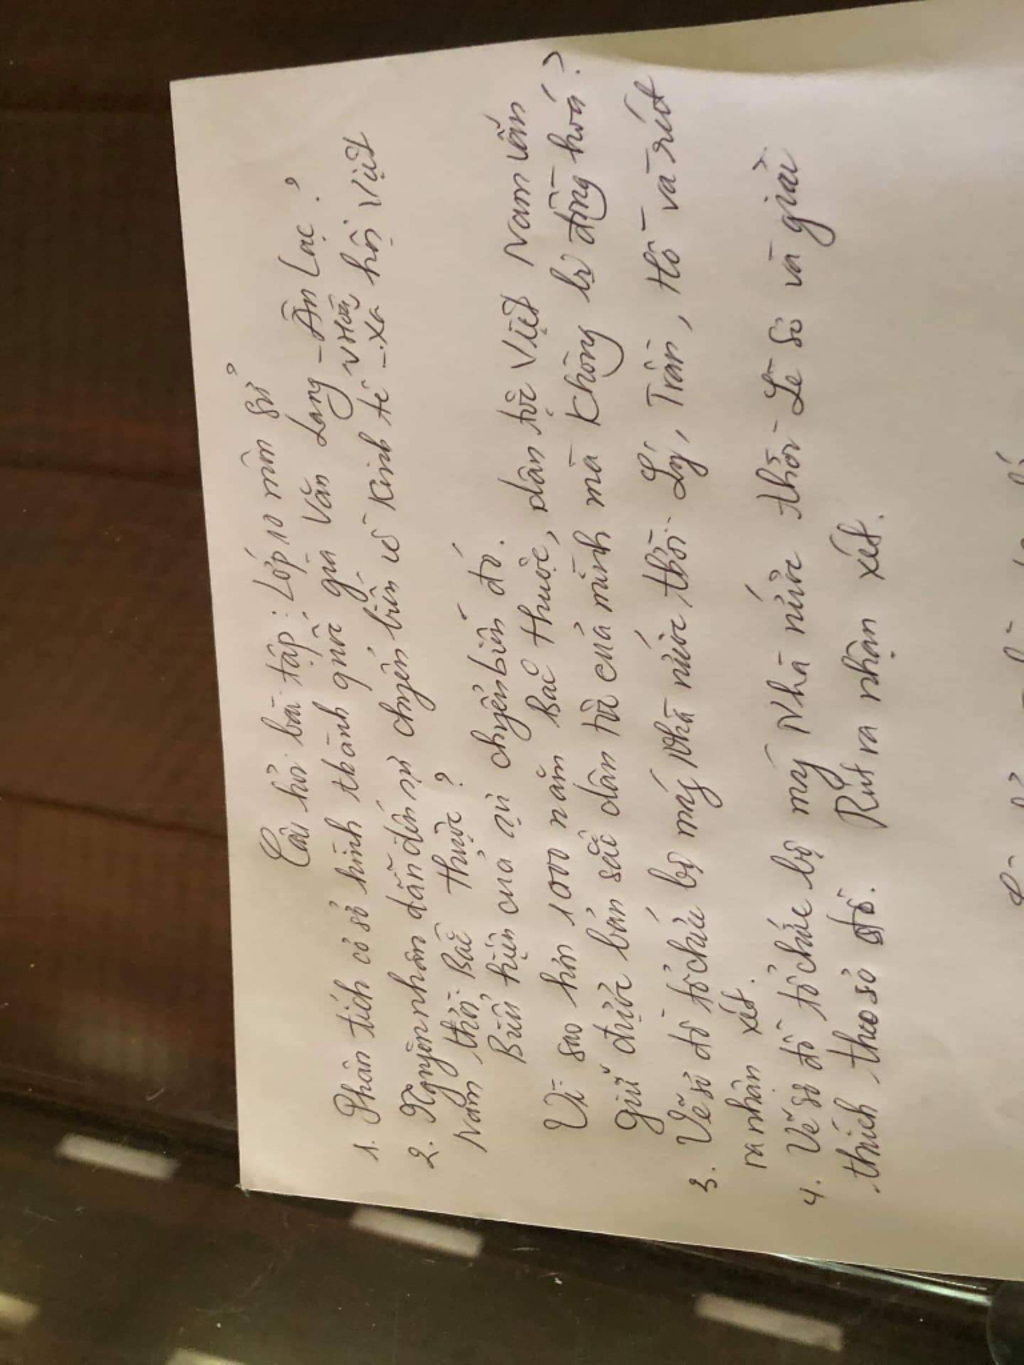 Câu hỏi bài tập: Lớp 10 môn Sử
1. Phân tích cơ sở hình thành quốc gia Văn Lang - Âu Lạc?
2. Nguyên nhân dẫn đến sự chuyển biến về Kinh tế - VHoá - xã hội Việt
Nam thời Bắc thuộc?
Biểu hiện của sự chuyển biến đó.
Vì sao hơn 1000 năm Bắc thuộc, dân tộc Việt Nam vẫn
giữ được bản sắc dân tộc của mình mà không bị đồng hoá?
3. Vẽ sơ đồ tổ chức bộ máy Nhà nước thời Lý, Trần, Hồ và rút
ra nhận xét.
4. Vẽ sơ đồ tổ chức bộ máy Nhà nước thời Lê Sơ và giải
thích theo sơ đồ. Rút ra nhận xét.